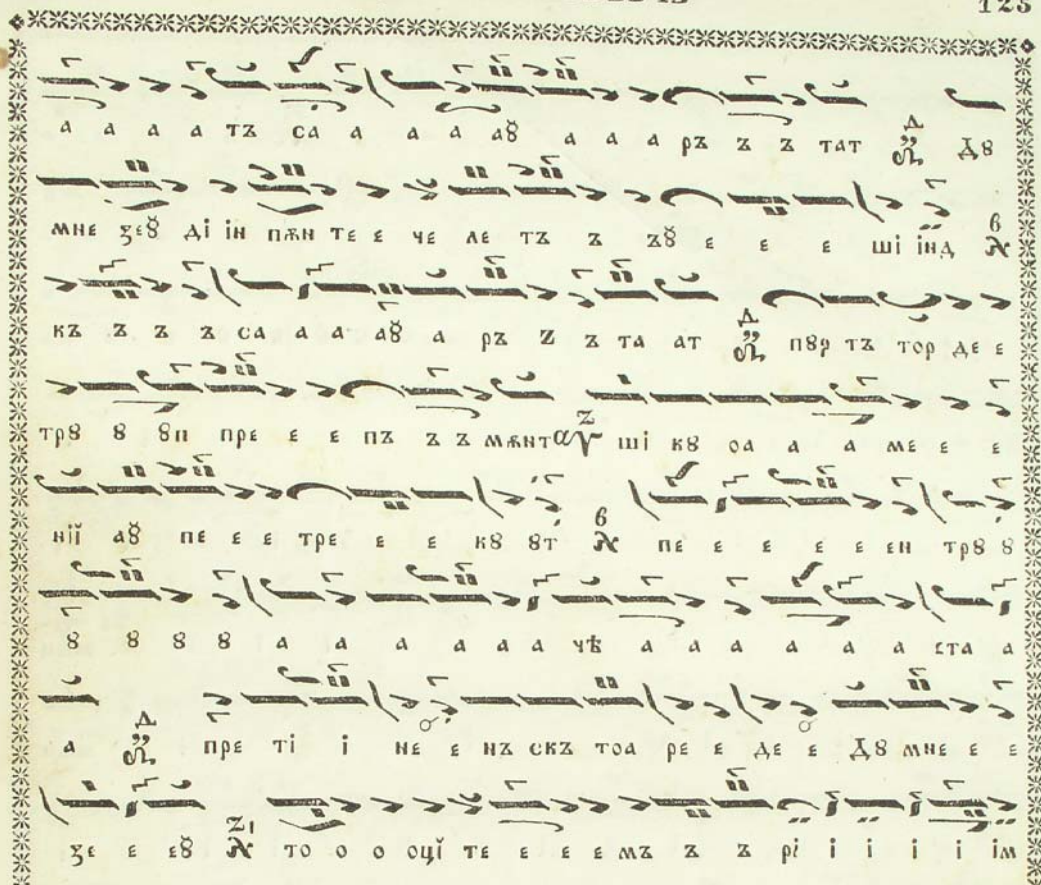 125
а а а а тꙁ са а а а аꙋ а а а рꙁ ꙁ ꙁ тат Д Дꙋ
мне ꙃеꙋ ді ін пѫн те е че ле тꙁ ꙁ ꙁꙋ е е е ші інд в
кꙁ ꙁ ꙁ ꙁ са а а аꙋ а рꙁ ꙁ ꙁ та ат Д пꙋр тꙁ тор де е
трꙋ ꙋ ꙋп пре е е пꙁ ꙁ ꙁ мѫнт Ꙁ ші кꙋ оа а а ме е е
нїї аꙋ пе е е тре е е кꙋ ꙋт в пе е е е е ен трꙋ ꙋ
ꙋ ꙋ ꙋ ꙋ а а а а а а чѣ а а а а а а ста а
а Д пре ті і не е нꙁ скꙁ тоа ре е де е Дꙋ мне е е
ꙃе е еꙋ Ꙁ то о о оції те е е е мꙁ ꙁ ꙁ рі і і і і ім